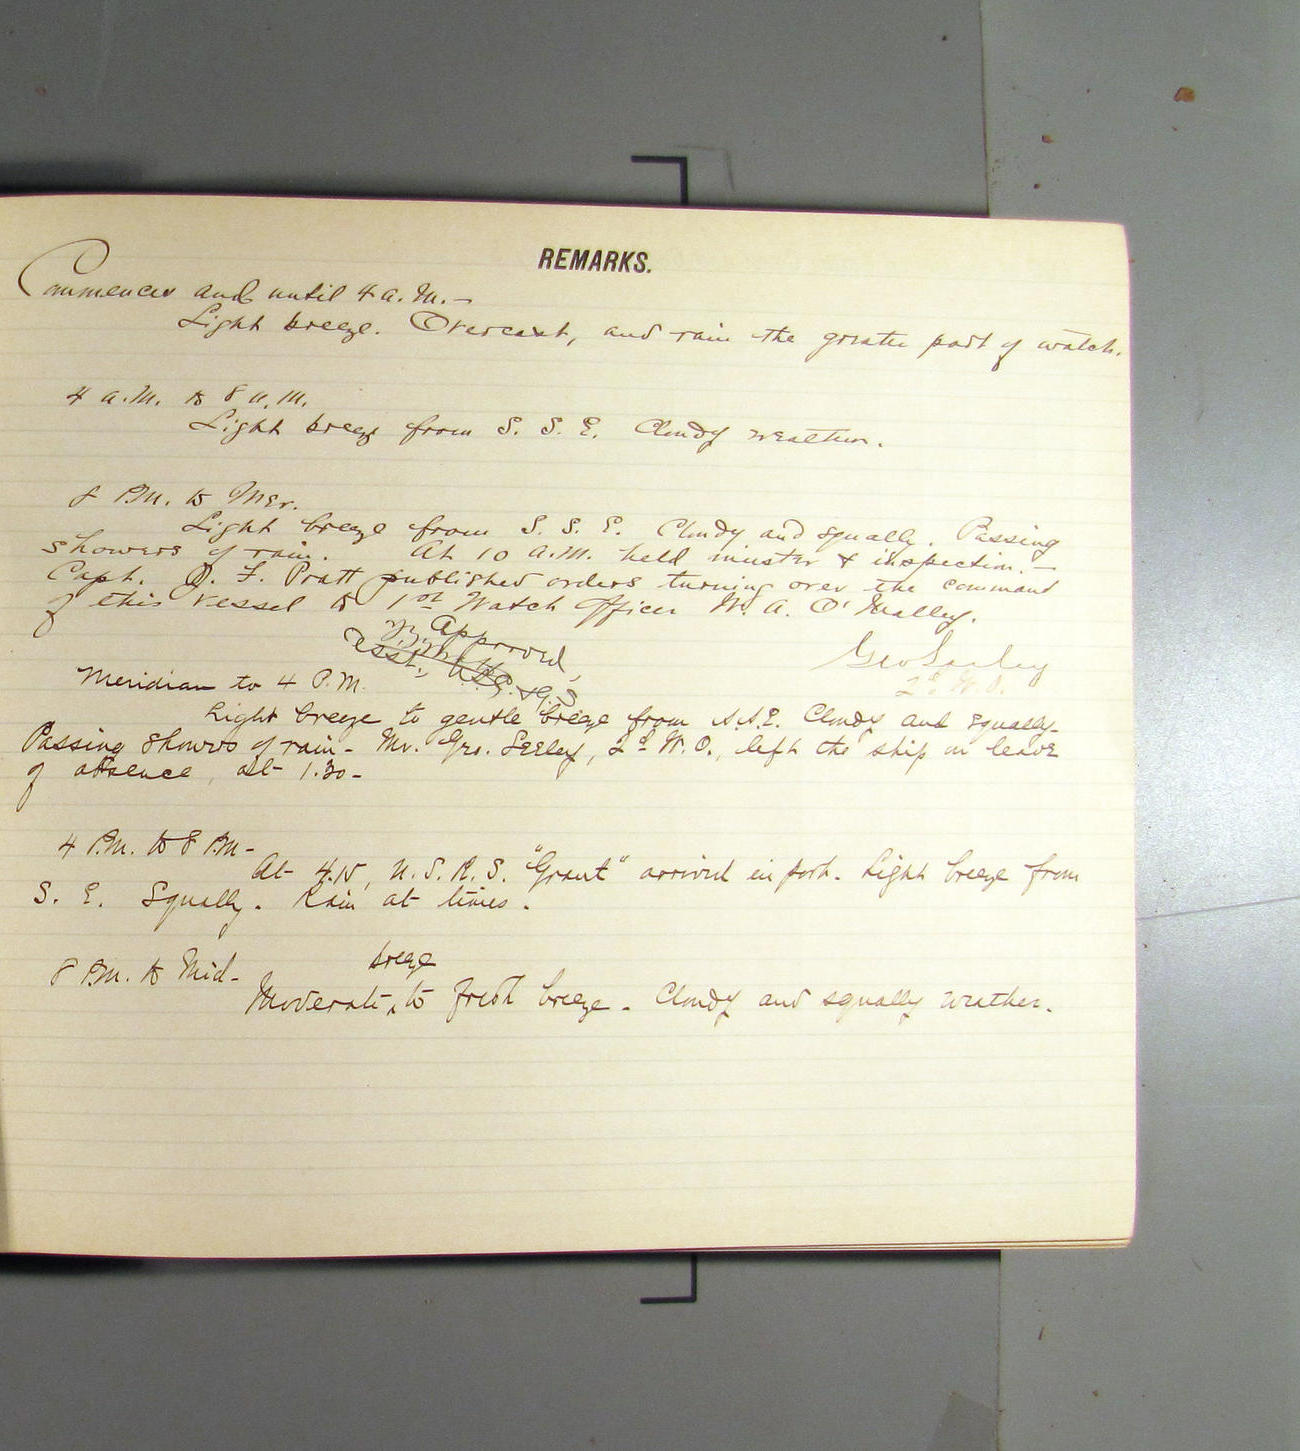 REMARKS.
Commences and until 4 a.m. —
Light breeze. Overcast, and rain the greater part of watch.
4 a.m. to 8 a.m.
Light breeze from S. S. E. Cloudy weather.
8 P.M. to Mer.
Light breeze from S. S. E. Cloudy and squally. Passing
showers of rain. At 10 A.M. held muster & inspection. —
Capt. J. F. Pratt published orders turning over the command
of this vessel to 1st Watch Officer W. A. O'Malley.
Approved,
Geo Seeley
Asst. U.S.C. & G.S
2d W.O.
Meridian to 4 P.M.
Light breeze to gentle breeze from S.S.E. Cloudy and squally -
Passing showers of rain - Mr. Geo. Seeley, 2d W.O., left the ship on leave
of absence, at 1.30 -
4 P.M. to 8 P.M -
At 4.15, U.S.R.S. "Grant" arrived in port. Light breeze from
S. E. Squally. Rain at times.
8 P.M. to Mid -
breeze
Moderate ^ to fresh breeze - Cloudy and squally weather.